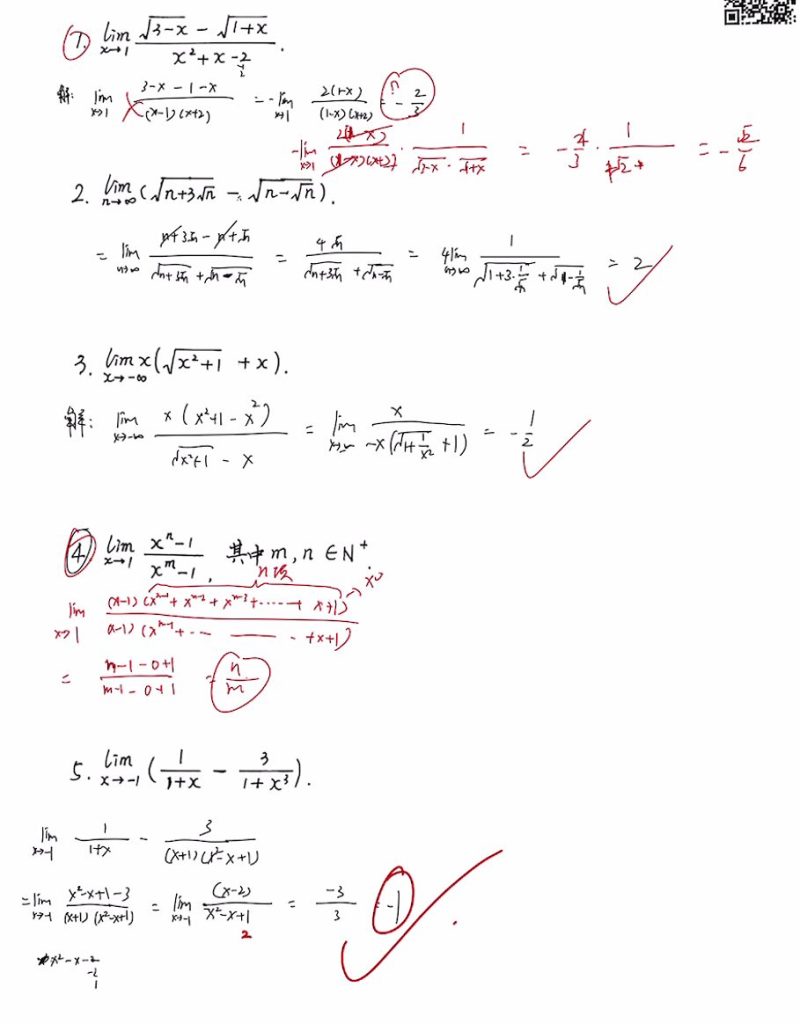 1. lim x→1 (√(3-x) - √(1+x)) / (x²+x-2).
解: lim x→1 (3-x-1-x) / ((x-1)(x+2)) = -lim x→1 2(1-x) / ((1-x)(x+2)) = -2/3
-lim x→1 2(1-x) / ((1-x)(x+2)) · 1 / (√(3-x) · √(1+x)) = · 1 = -√2/6
2. lim n→∞ (√(n+3√n) - √(n-√n)).
= lim n→∞ (n+3√n - n+√n) / (√(n+3√n) + √(n-√n)) = 4√n / (√(n+3√n) + √(n-√n)) = 4lim n→∞ 1 / (√(1+3·1/√n) + √(1-1/√n)) = 2
3. lim x→-∞ x(√(x²+1) + x).
解: lim x→-∞ x(x²+1-x²) / (√(x²+1) - x) = lim x / (-x(√(1+1/x²) + 1)) = -1/2
4 lim x→1 (xⁿ-1) / (xᵐ-1), 其中 m, n ∈ N⁺.
n项
x⁰
lim x→1 (x-1)(xⁿ⁻¹+xⁿ⁻²+xⁿ⁻³+……+x+1) / (x-1)(xᵐ⁻¹+…+x+1)
= (n-1-0+1) / (m-1-0+1) = n/m
5. lim x→-1 (1/(1+x) - 3/(1+x³)).
lim x→-1 1/(1+x) - 3/((x+1)(x²-x+1))
= lim x→-1 (x²-x+1-3) / ((x+1)(x²-x+1)) = lim x→-1 (x-2) / (x²-x+1) = -3/3 = -1
2
x²-x-2
-2
1